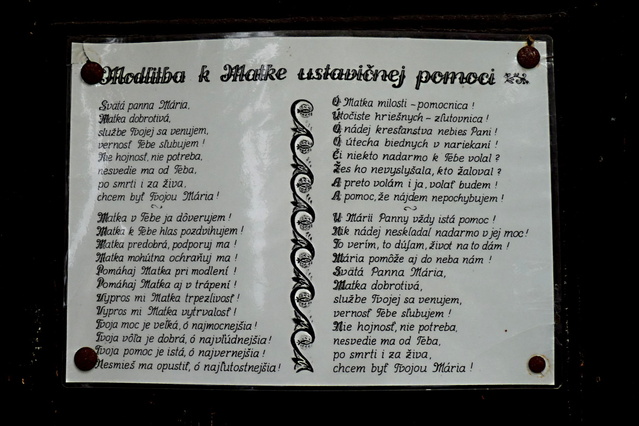 Modlitba k Matke ustavičnej pomoci
Svätá panna Mária,
Matka dobrotivá,
službe Tvojej sa venujem,
vernosť Tebe sľubujem!
Nie hojnosť, nie potreba,
nesvedie ma od Teba,
po smrti i za živa,
chcem byť Tvojou Mária!
Matka v Tebe ja dôverujem!
Matka k Tebe hlas pozdvihujem!
Matka predobrá, podporuj ma!
Matka mohútna ochraňuj ma!
Pomáhaj Matka pri modlení!
Pomáhaj Matka aj v trápení!
Vypros mi Matka trpezlivosť!
Vypros mi Matka vytrvalosť!
Tvoja moc je veľká, ó najmocnejšia!
Tvoja vôľa je dobrá, ó najvľúdnejšia!
Tvoja pomoc je istá, ó najvernejšia!
Nesmieš ma opustiť, ó najľutostnejšia!
Ó Matka milosti - pomocnica!
Útočiste hriešnych - zľutovnica!
Ó nádej kresťanstva nebies Pani!
Ó útecha biednych v nariekaní!
Či niekto nadarmo k Tebe volal?
Žes ho nevyslyšala, kto žaloval?
A preto volám i ja, volať budem!
A pomoc, že nájdem nepochybujem!
U Márii Panny vždy istá pomoc!
Nik nádej neskladal nadarmo v jej moc!
To verím, to dúfam, život na to dám!
Mária pomôže aj do neba nám!
Svätá Panna Mária,
Matka dobrotivá,
službe Tvojej sa venujem,
vernosť Tebe sľubujem!
Nie hojnosť, nie potreba,
nesvedie ma od Teba,
po smrti i za živa,
chcem byť Tvojou Mária!